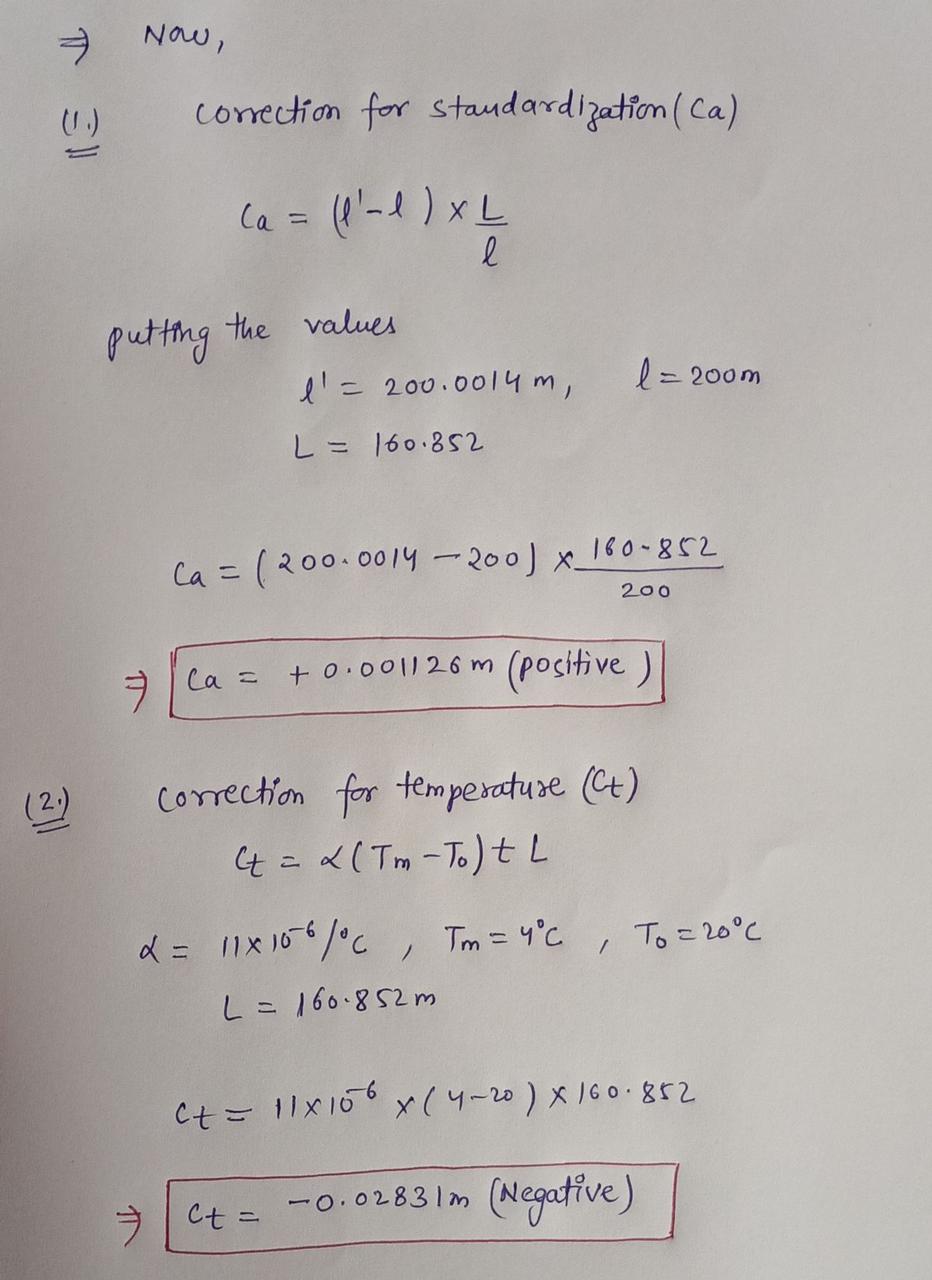 ⇒ Now,
(1.) correction for standardization (Ca)
Ca = (l'-l) x L
l
putting the values
l' = 200.0014 m, l = 200m
L = 160.852
Ca = (200.0014 - 200) x 160.852
200
⇒ Ca = + 0.001126 m (positive)
(2.) correction for temperature (Ct)
Ct = α(Tm - To) t L
α = 11x10⁻⁶/°C , Tm = 4°C , To = 20°C
L = 160.852m
Ct = 11x10⁻⁶ x (4-20) x 160.852
⇒ Ct = -0.02831m (Negative)